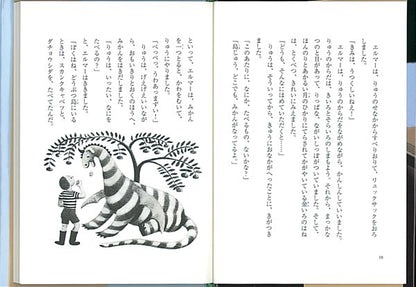 エルマーは、りゅうのせなかからすべりおりて、リュックサックをおろ
しました。
「きみは、うつくしいねえ！」
エルマーは、りゅうのからだをながめながら、かんしんしていいました。
りゅうのからだは、きいろとそらいろのしまもよう。それから、まっかな
つのと目があって、りっぱな、ながいしっぽがついていました。そして、
ほんのりとあかるい月のひかりにてらされてかがやいている金いろのはね
は、とくべつ、きれいにみえました。
「どうも、そんなにほめていただくと……」
りゅうは、そういってから、きゅうにおなかがへったことに、きがつき
ました。
「このあたりに、なにか、たべるもの、ないかな？」
「島じゅう、どこでも、みかんがなってるよ。」
といって、エルマーは、みかん
を一つとると、かわをむいて、
りゅうにやりました。
「ぺっぺっ、うわあっまずい！」
りゅうは、げえげえいいなが
ら、おもいきりとおくのほうへ、
みかんをはきだしました。
「りゅうは、いったい、なにを
たべるの？」
と、エルマーはききました。
「ぼくはね、どうぶつ島にいる
ときは、スカンクキャベツと、
ダチョウシダを、たべてたんだ。
16